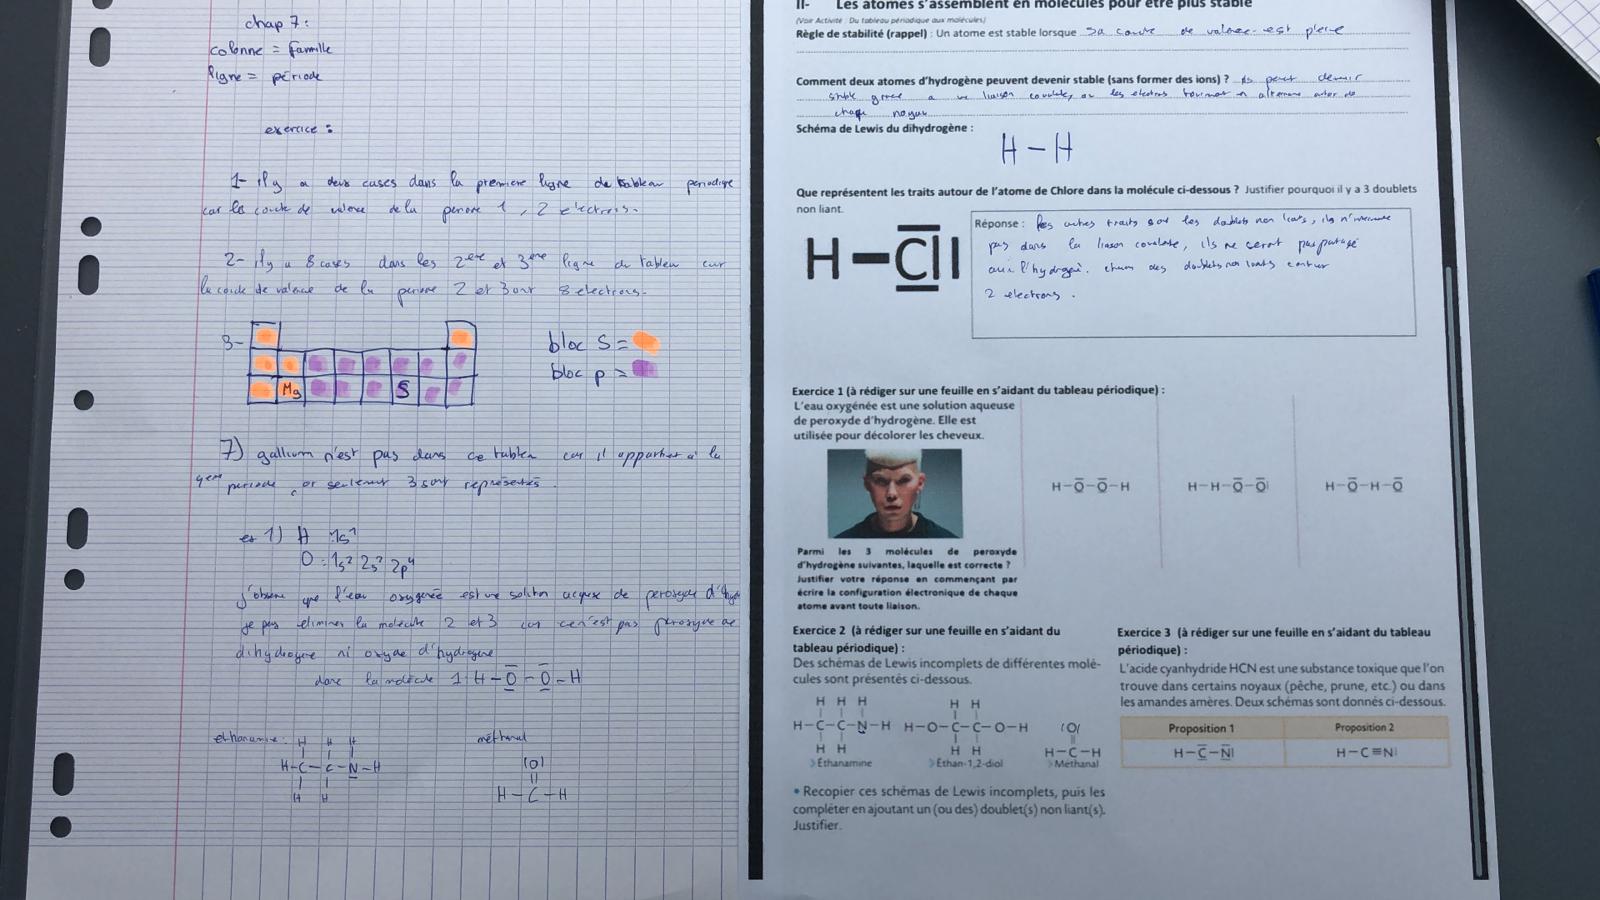 chap 7 :
colonne = famille
ligne = période
exercice :
1- il y a deux cases dans la première ligne du tableau periodique
car la couche de valence de la periode 1, 2 electrons.
2- il y a 8 cases dans les 2ère et 3ème ligne du tableau car
la couche de valence de la periode 2 et 3 ont 8 electrons.
3-
Mg
S
bloc S =
bloc p =
7) gallium n'est pas dans ce tableau car il appartient à la
4eme periode, or seulement 3 sont représentés.
ex 1) H 1s¹
O : 1s² 2s² 2p⁴
j'observe que l'eau oxygénée est une solution aqueuse de peroxyde d'hydro
je peux éliminer la molécule 2 et 3 car ce n'est pas peroxyde de
dihydrogène ni oxyde d'hydrogène
donc la molécule 1 : H-O-O-H
ethanamine :
H H H
H-C-C-N-H
H H
méthanal
|O|
||
H-C-H
II- Les atomes s'assemblent en molécules pour être plus stable
(Voir Activité : Du tableau périodique aux molécules)
Règle de stabilité (rappel) : Un atome est stable lorsque sa couche de valence est pleine
Comment deux atomes d'hydrogène peuvent devenir stable (sans former des ions) ? ils peut devenir
stable grace a une liaison covalente, ou les electrons tournent en alternance autour de
chaque noyau
Schéma de Lewis du dihydrogène :
H-H
Que représentent les traits autour de l'atome de Chlore dans la molécule ci-dessous ? Justifier pourquoi il y a 3 doublets
non liant.
H-Cl|
Réponse : les autres traits sont les doublets non liants, ils n'intervienne
pas dans la liaison covalente, ils ne seront pas partagé
avec l'hydrogène. chacun des doublets non liants contient
2 electrons.
Exercice 1 (à rédiger sur une feuille en s'aidant du tableau périodique) :
L'eau oxygénée est une solution aqueuse
de peroxyde d'hydrogène. Elle est
utilisée pour décolorer les cheveux.
H-O-O-H
H-H-O-O|
H-O-H-O
Parmi les 3 molécules de peroxyde
d'hydrogène suivantes, laquelle est correcte ?
Justifier votre réponse en commençant par
écrire la configuration électronique de chaque
atome avant toute liaison.
Exercice 2 (à rédiger sur une feuille en s'aidant du
tableau périodique) :
Des schémas de Lewis incomplets de différentes molé-
cules sont présentés ci-dessous.
H H H
H-C-C-N-H
H H
Éthanamine
H H
H-O-C-C-O-H
H H
Éthan-1,2-diol
|O|
H-C-H
Méthanal
• Recopier ces schémas de Lewis incomplets, puis les
compléter en ajoutant un (ou des) doublet(s) non liant(s).
Justifier.
Exercice 3 (à rédiger sur une feuille en s'aidant du tableau
périodique) :
L'acide cyanhydride HCN est une substance toxique que l'on
trouve dans certains noyaux (pêche, prune, etc.) ou dans
les amandes amères. Deux schémas sont donnés ci-dessous.
Proposition 1 Proposition 2
H-C-N| H-C≡N|